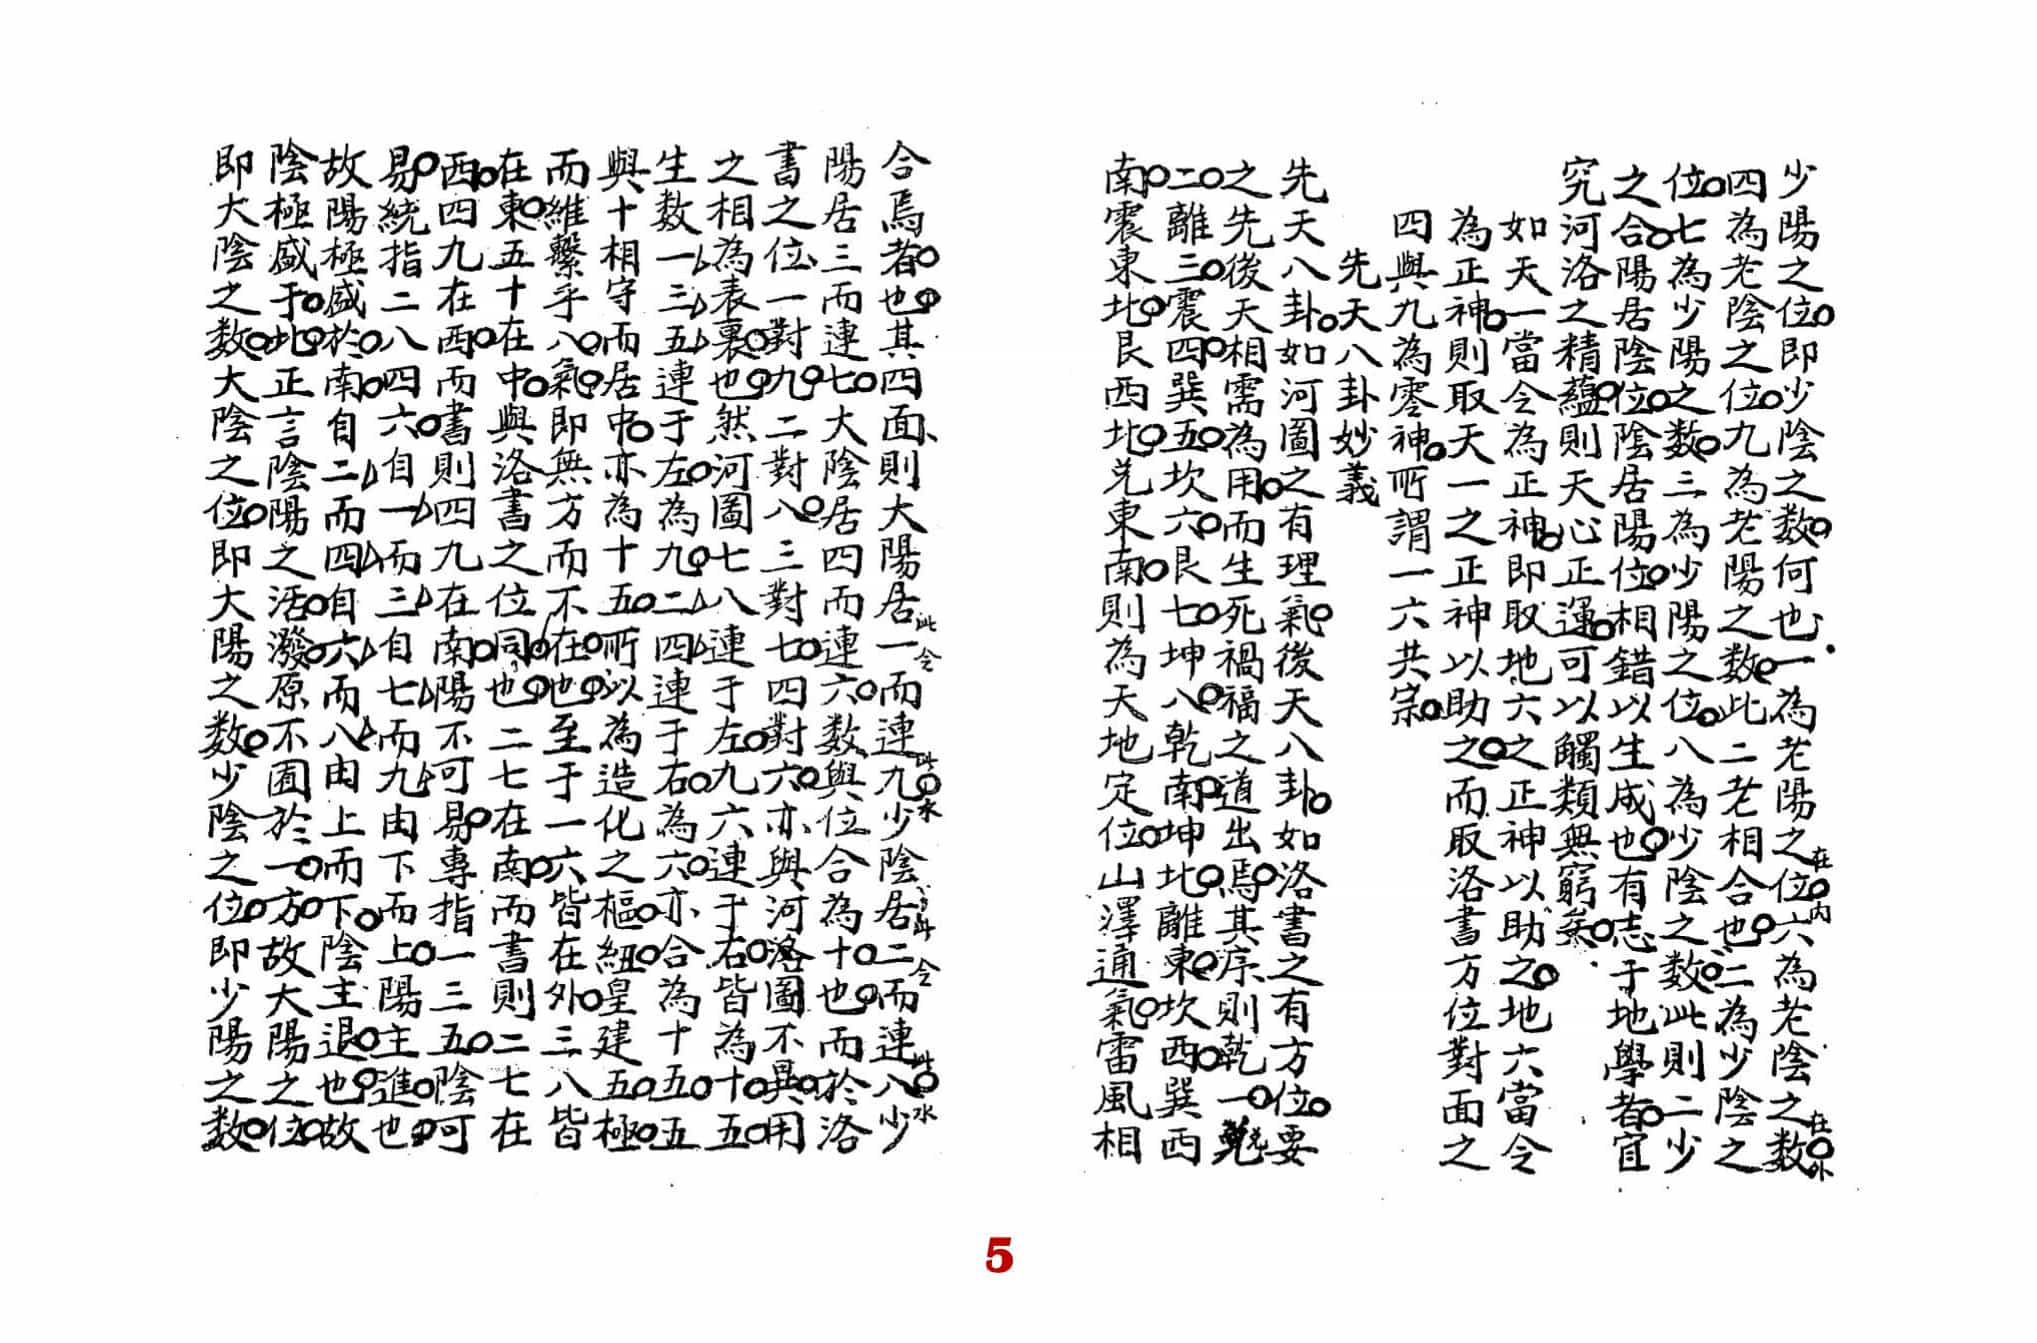 合焉者也其四面則大陽居一而連九少陰居二而連八少
陽居三而連七大陰居四而連六数與位合為十也而於洛
書之位一對九二對八三對七四對六亦與河洛圖不異用
之相為表裏也然河圖七八連于左九六連于右皆為十五
生数一三五連于左為九二四連于右為六亦合為十五五
與十相守而居中亦為十五所以為造化之樞紐皇建五極
而維繫乎八氣即無方而不在也至于一六皆在外三八皆
在東五十在中與洛書之位同也二七在南而書則二七在
西四九在西而書則四九在南陽不可易專指一三五陰可
易統指二八四六自一而三自七而九由下而上陽主進也
故陽極盛於南自二而四自六而八由上而下陰主退也故
陰極盛于北正言陰陽之活潑原不囿於一方故大陽之位
即大陰之数大陰之位即大陽之数少陰之位即少陽之数
少陽之位即少陰之数何也一為老陽之位六為老陰之数
在內
在外
四為老陰之位九為老陽之数此二老相合也二為少陰之
位七為少陽之数三為少陽之位八為少陰之数此則二少
之合陽居陰位陰居陽位相錯以生成也有志于地學者宜
究河洛之精蘊則天心正運可以觸類無窮矣
如天一當令為正神即取地六之正神以助之地六當令
為正神則取天一之正神以助之而取洛書方位對面之
四與九為零神所謂一六共宗
先天八卦妙義
先天八卦如河圖之有理氣後天八卦如洛書之有方位要
之先後天相需為用而生死禍福之道出焉其序則乾一兌
二離三震四巽五坎六艮七坤八乾南坤北離東坎西巽西
南震東北艮西北兌東南則為天地定位山澤通氣雷風相
5